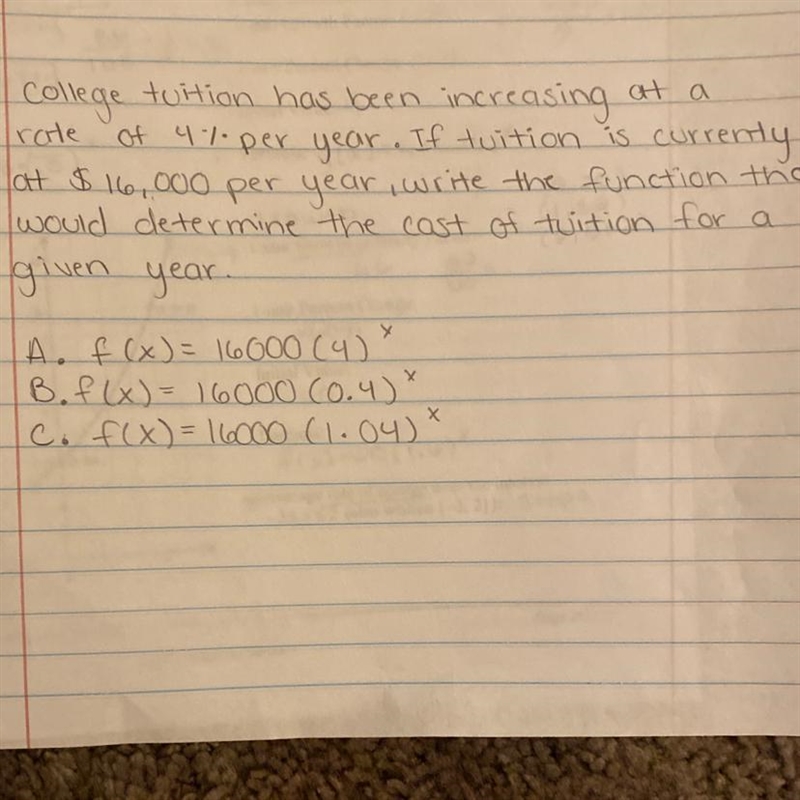 College tuition has been increasing at a
rate of 4% per year. If tuition is currently
at $16,000 per year, write the function tha
would determine the cost of tuition for a
given year.
A. f(x) = 16000 (4)^x
B. f(x) = 16000 (0.4)^x
C. f(x) = 16000 (1.04)^x